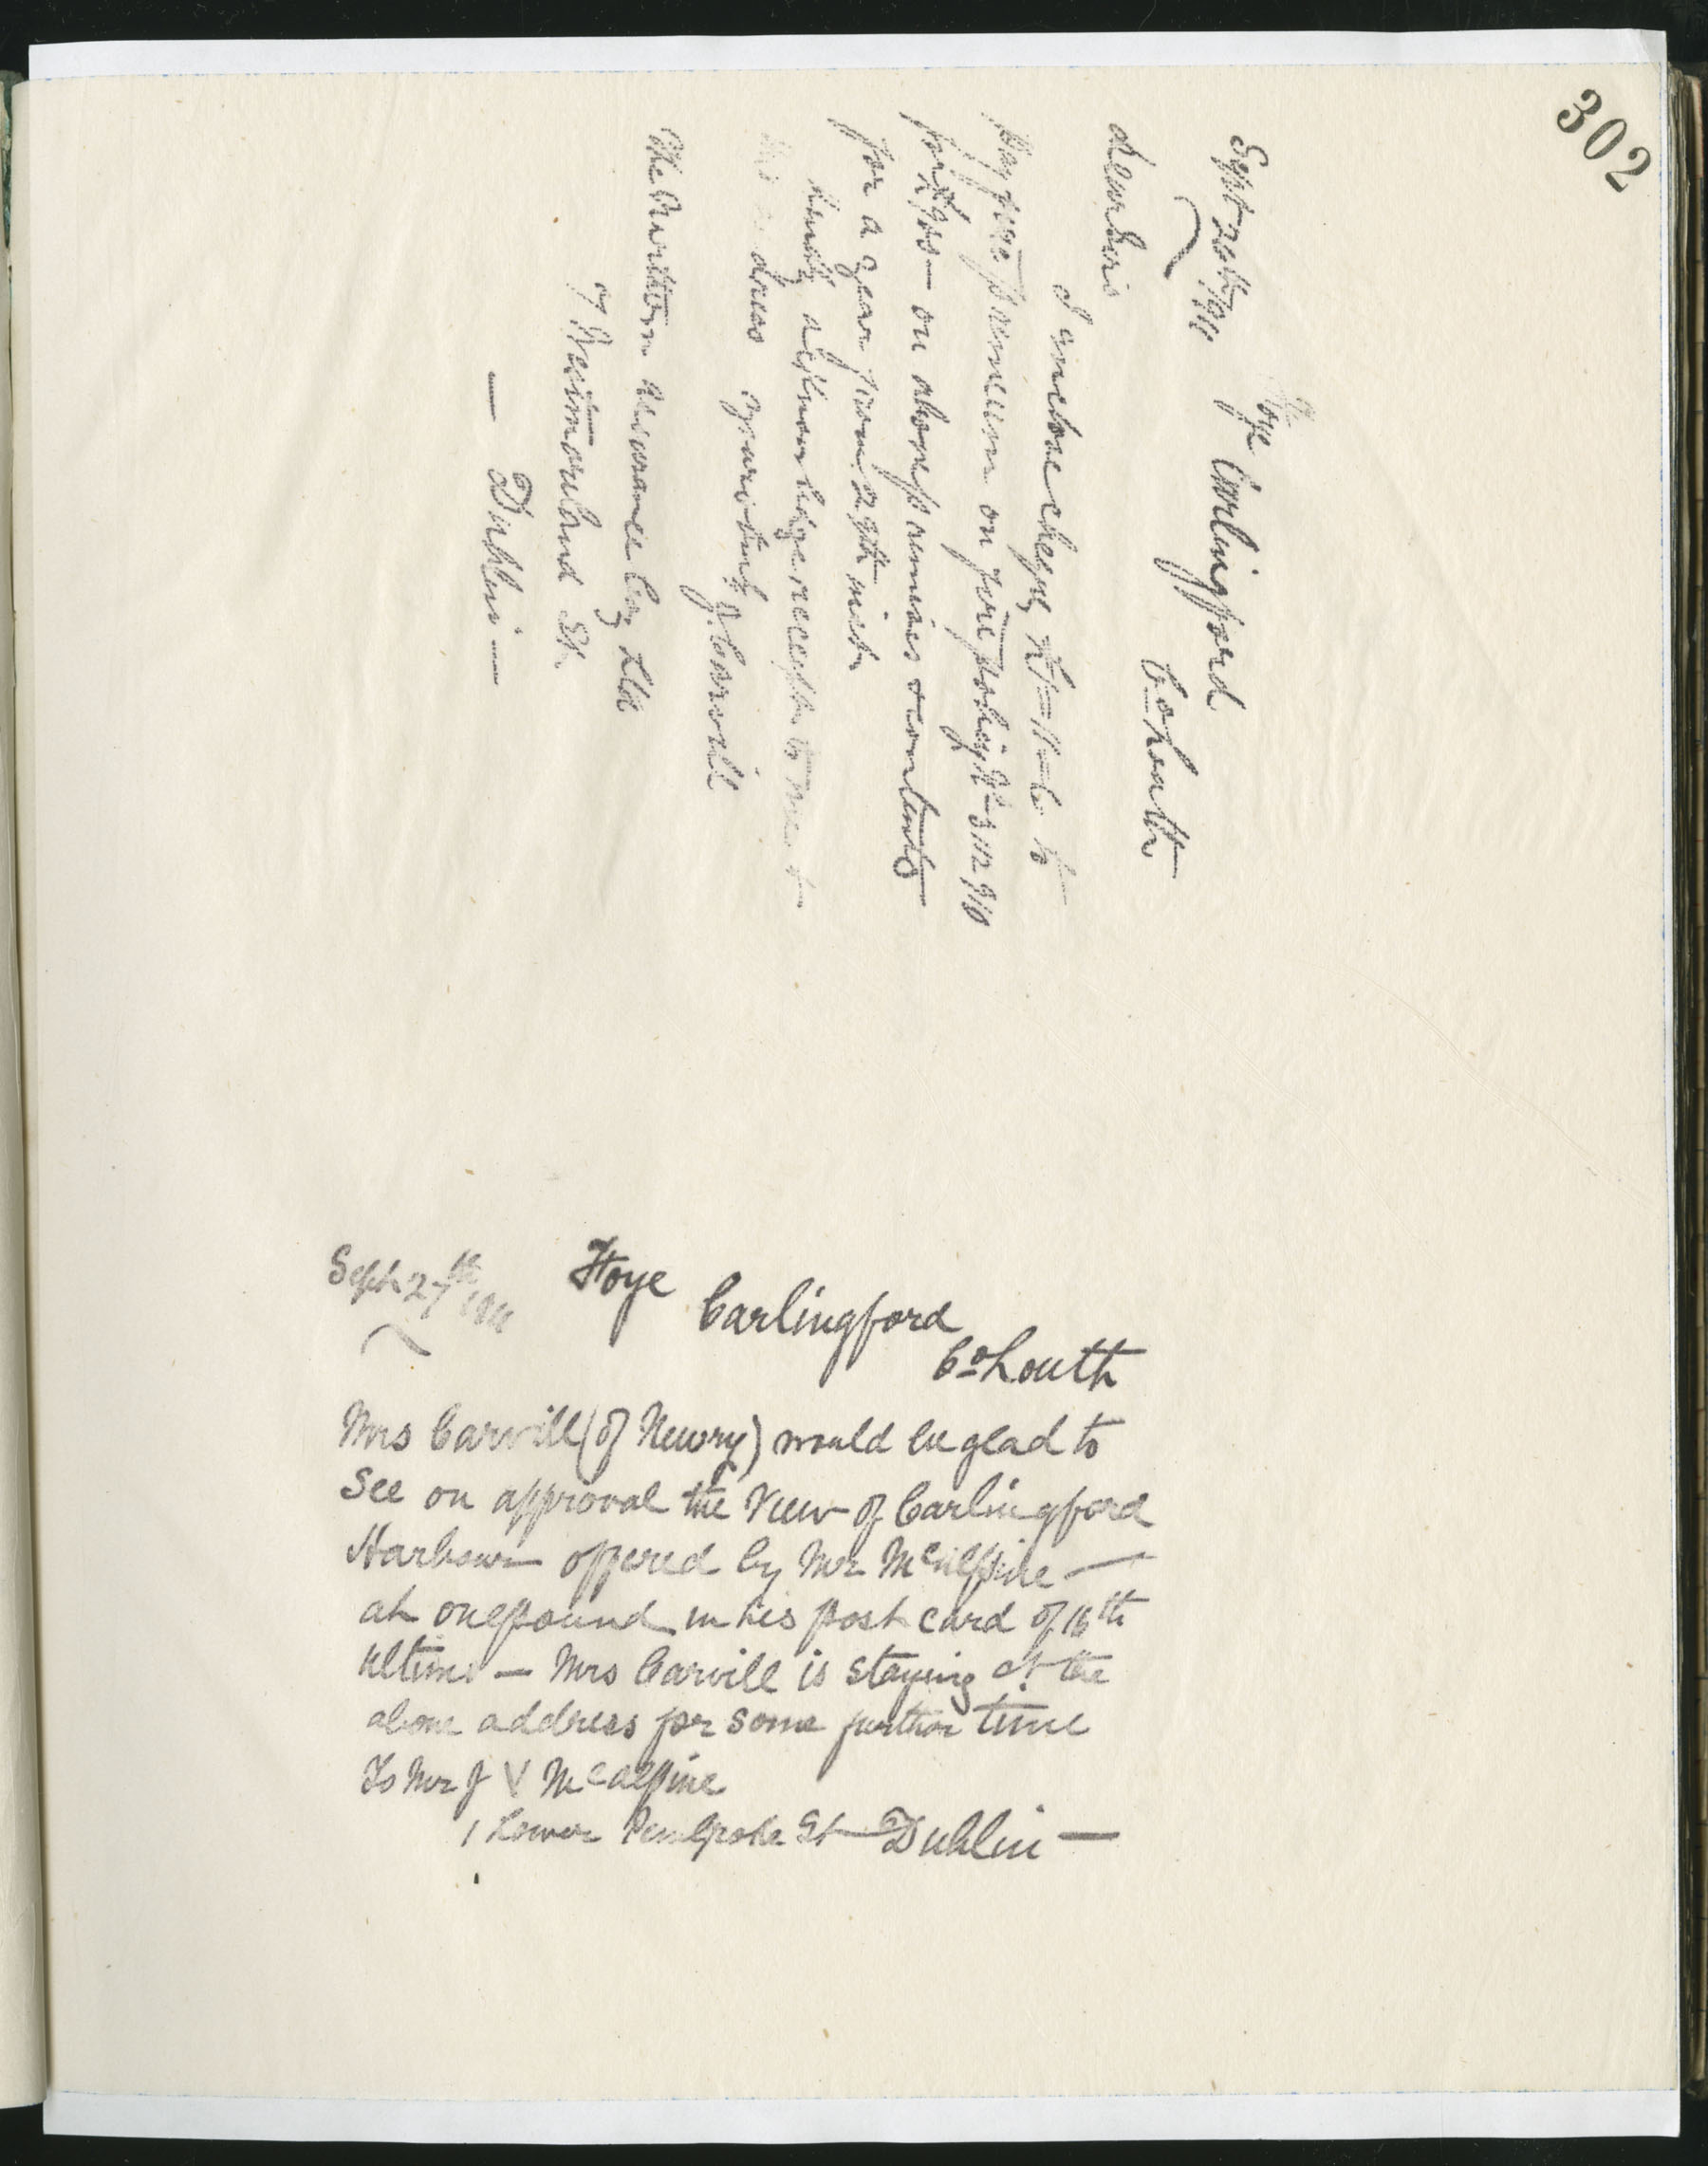 302
Sept 26th 1911
Carlingford
Co Louth
Dear Sirs
I enclose cheque to
pay fire premium on fire policy No
for on above premises & contents
for a year from 29th inst
kindly acknowledge receipt to me at
address yours truly
J. Carvill
The Northern Assurance Coy Ltd
7 Westmorland St.
— Dublin —
Sept 27th 1911 Ffoye
Carlingford
Co Louth
Mrs Carvill (of Newry) would be glad to
see on approval the View of Carlingford
Harbour offered by Mr McAlpine —
at one pound in his post card of 16th
ultimo — Mrs Carvill is staying at the
above address for some further time
To Mr J V McAlpine
1 Lower Pembroke St — Dublin —